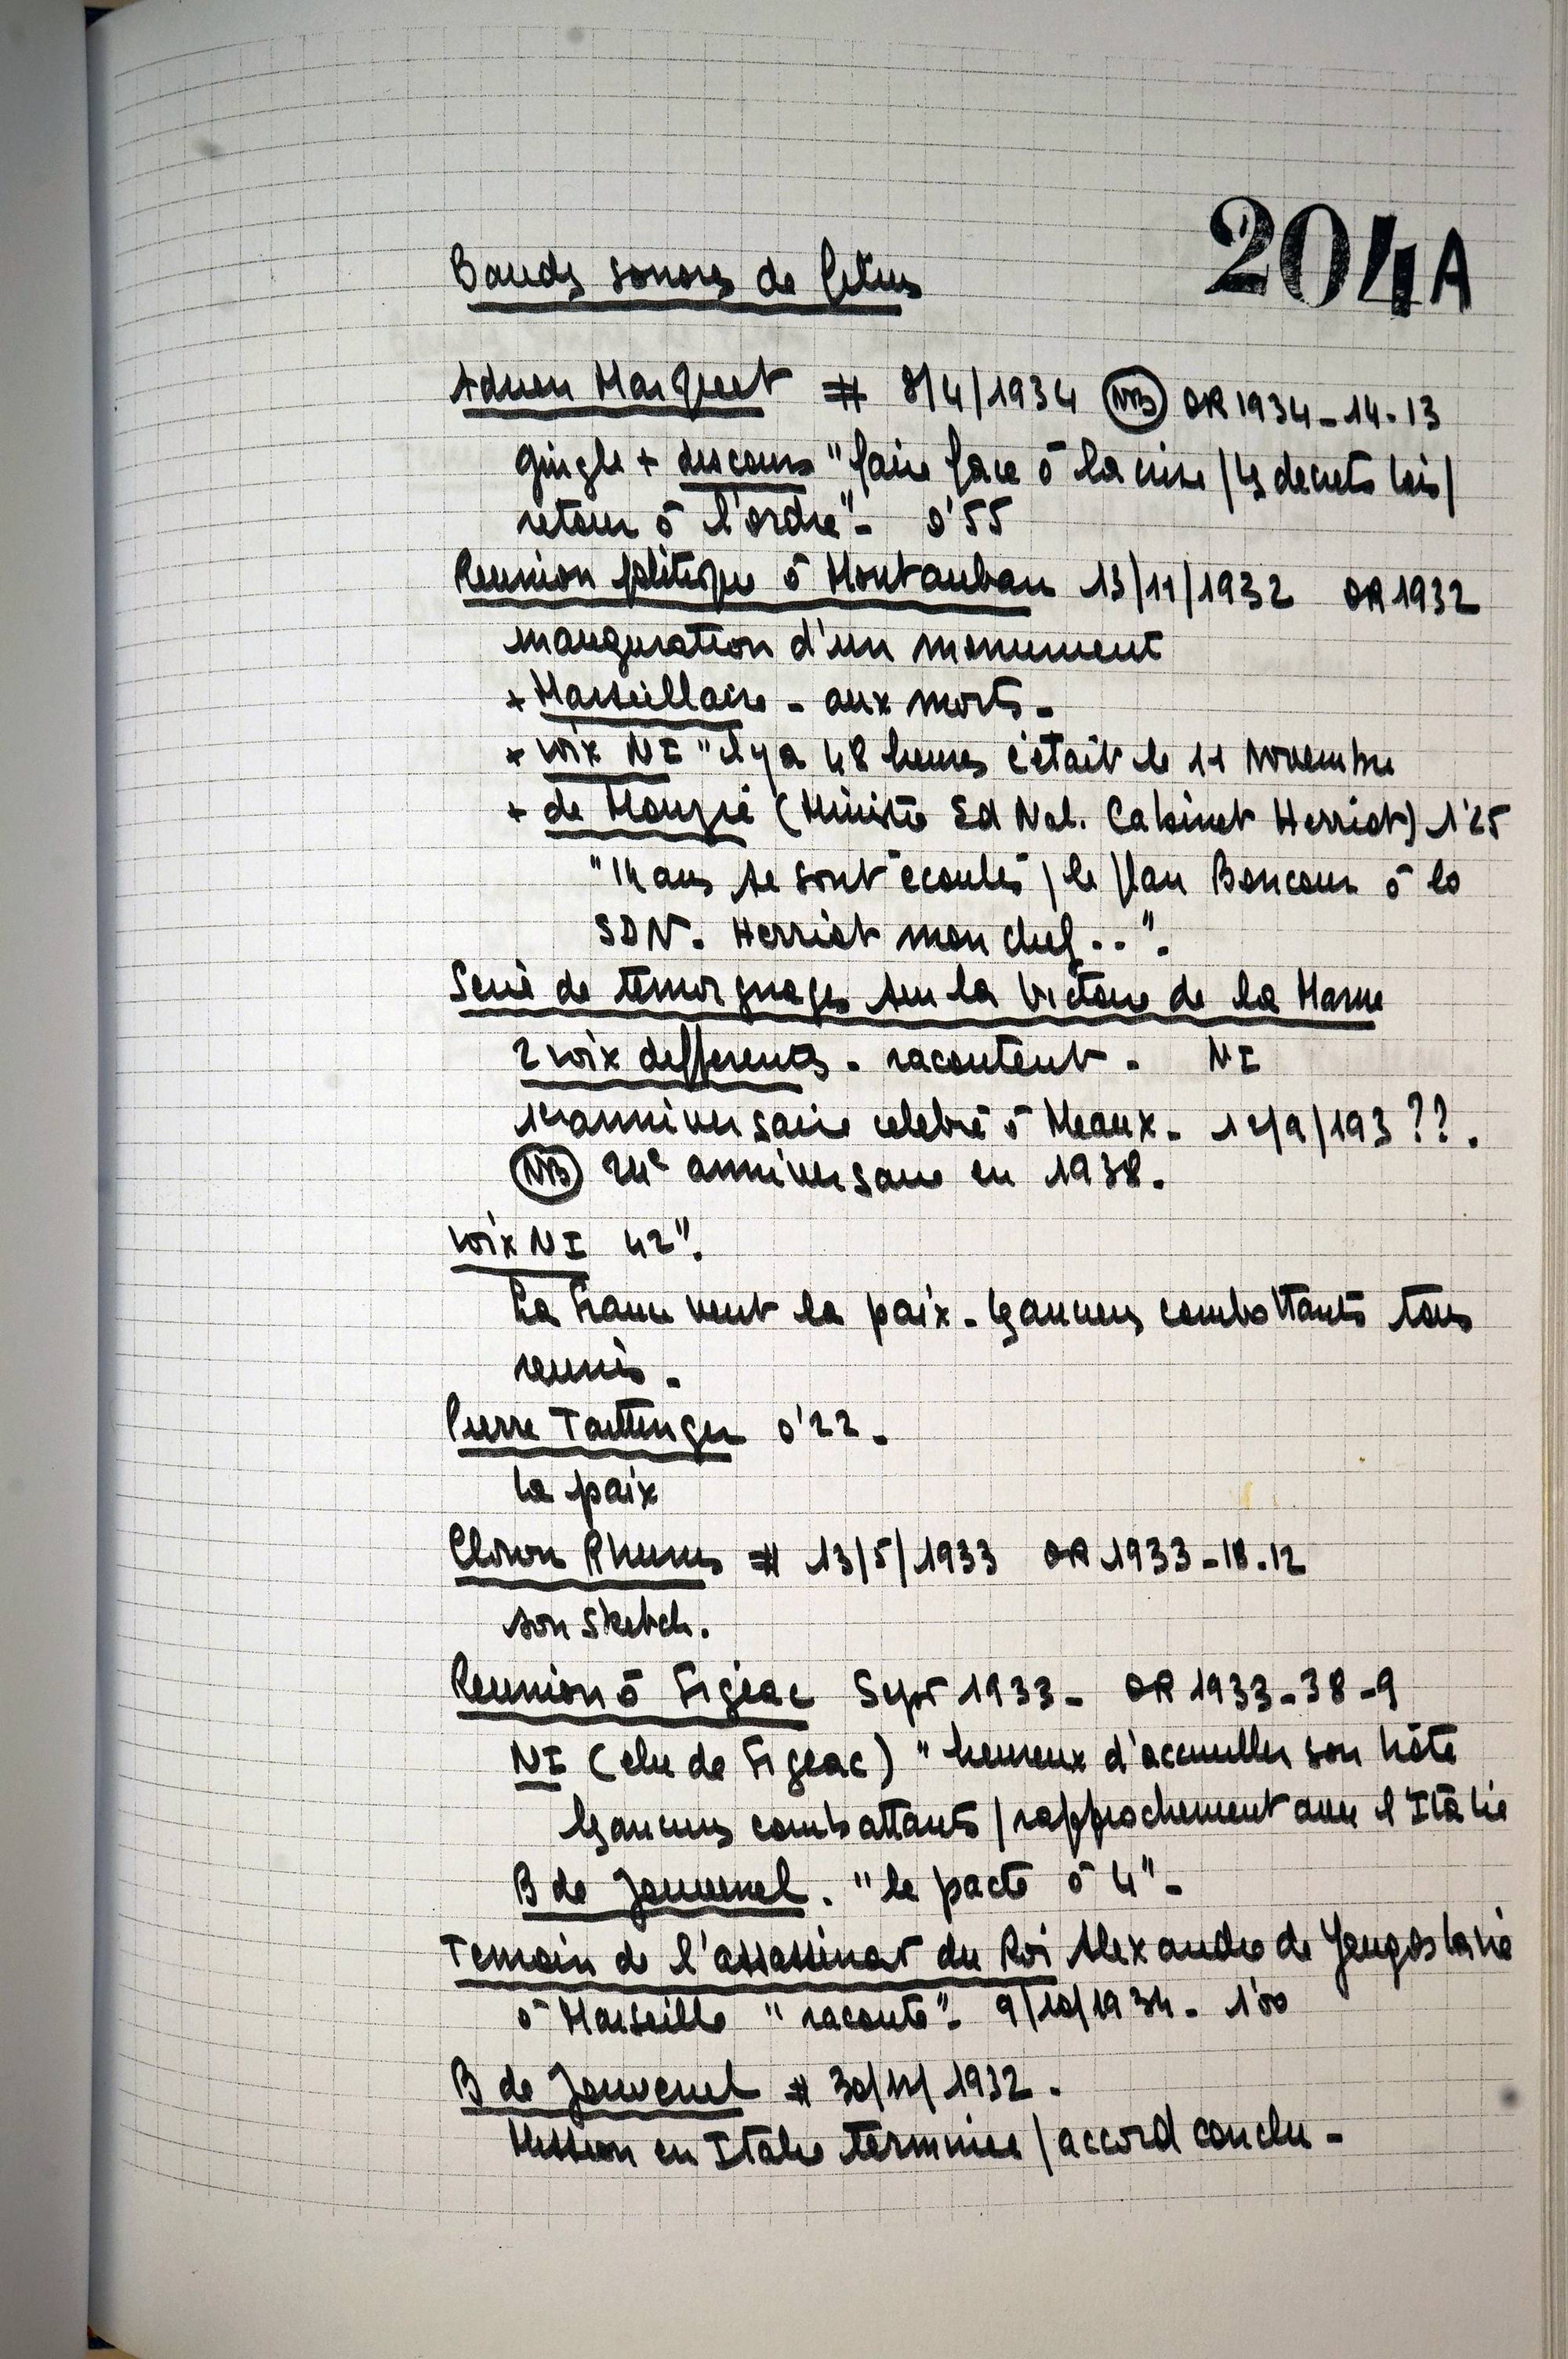 204A
Bandes sonores de films
Adrien Marquet # 8/4/1934 NB OR 1934_14.13
gingle + discours "faire face à la crise / les decrets lois /
retour à l'ordre"_ 0'55
Reunion politique à Montauban 13/11/1932 OR 1932
inauguration d'un monument
+ Marseillaise - aux morts_
+ voix NI "il y a 48 heures c'était le 11 Novembre
+ de Monzie (Ministre Ed Nal. Cabinet Herriot) 1'25
"14 ans se sont écoulés / le plan Boncour à la
SDN. Herriot mon chef..".
Serie de temoignages sur la Victoire de la Marne
2 voix differentes. racontent. NI
anniversaire celebré à Meaux_ 12/9/193??.
NB 24e anniversaire en 1938.
voix NI 42".
La France veut la paix_ les anciens combattants tous
reunis_
Pierre Taittinger 0'22_
la paix
Clown Rhum # 13/5/1933 OR 1933_18.12
son sketch.
Reunion à Figeac Sept 1933_ OR 1933_38_9
NI (elu de Figeac) "heureux d'accueillir son hôte
les anciens combattants / rapprochement avec l'Italie
B de Jouvenel. "le pacte à 4"_
Temoin de l'assassinat du Roi Alexandre de Yougoslavie
à Marseille "raconte"_ 9/10/1934_ 1'00
B de Jouvenel # 30/12/1932.
Mission en Italie terminée / accord conclu_